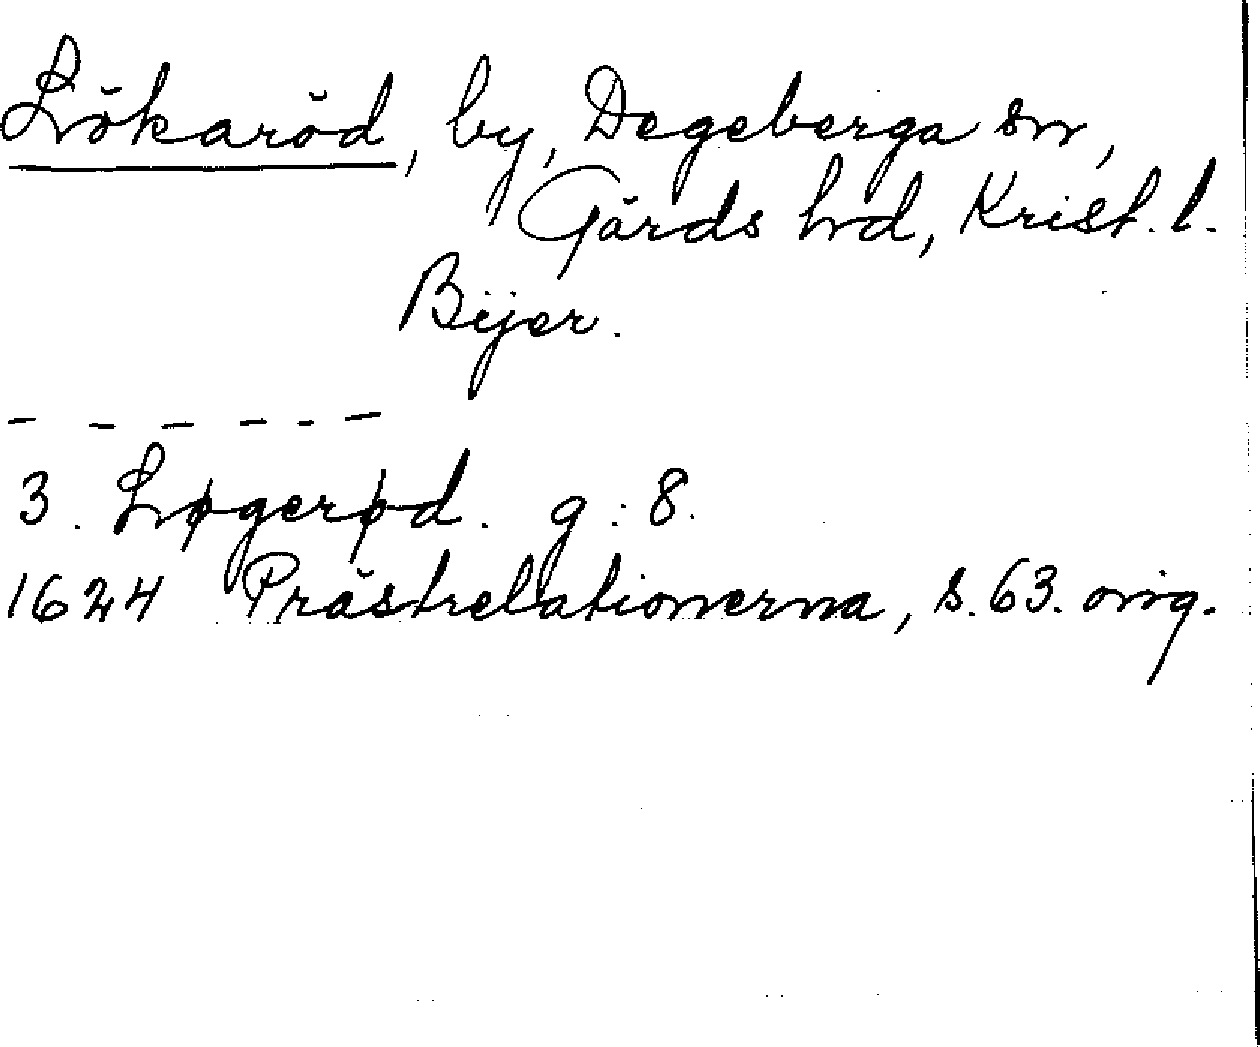 Lökaröd, by, Degeberga sn,
Gärds hd, Krist. l.
Bijer.
- - - - - -
3. Løgerød. g: 8.
1624 Prästrelationerna, s. 63. orig.